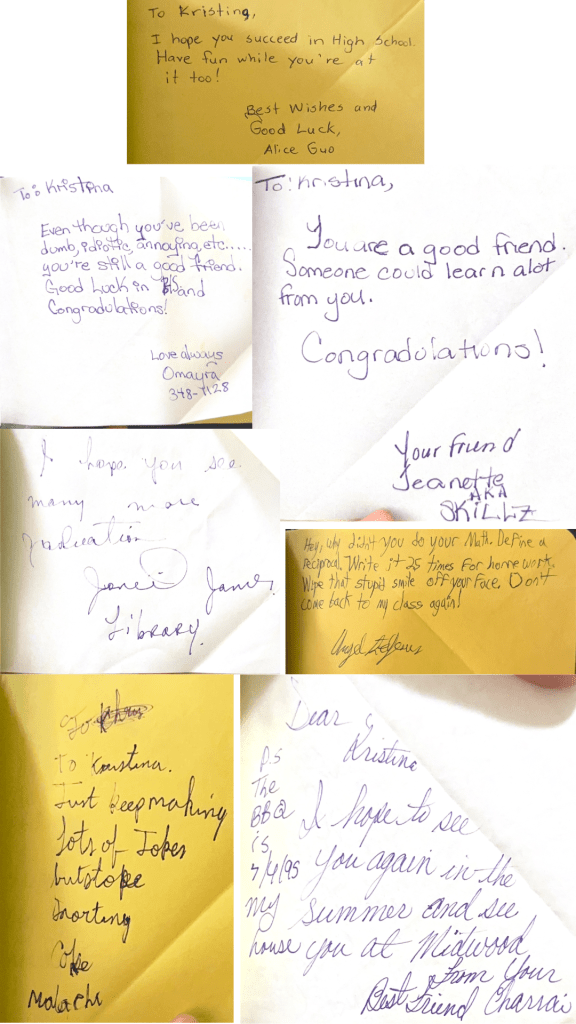 To Kristing,
I hope you succeed in High School.
Have fun while you're at
it too!
Best Wishes and
Good Luck,
Alice Guo
To: Kristina
Even though you've been
dumb, idiotic, annoying, etc.....
you're still a good friend.
Good Luck in HS and
Congradulations!
Love always
Omayra
348-1128
To: Kristina,
You are a good friend.
Someone could learn alot
from you.
Congradulations!
Your friend
Jeanette
AKA
SKILLZ
I hope you see
many more
graduation
James
Library
Hey, why didn't you do your Math. Define a
reciprocal. Write it 25 times for homework.
Wipe that stupid smile off your face. Don't
come back to my class again!
Angel DeJesus
To
To Kristina.
Just keep making
Lots of Jokes
but stope
snorting
Coke
Malachi
Dear
Kristina
I hope to see
you again in the
summer and see
you at Midwood
From Your
Best Friend Charrai
P.S
The
BBQ
is
7/4/95
my
house